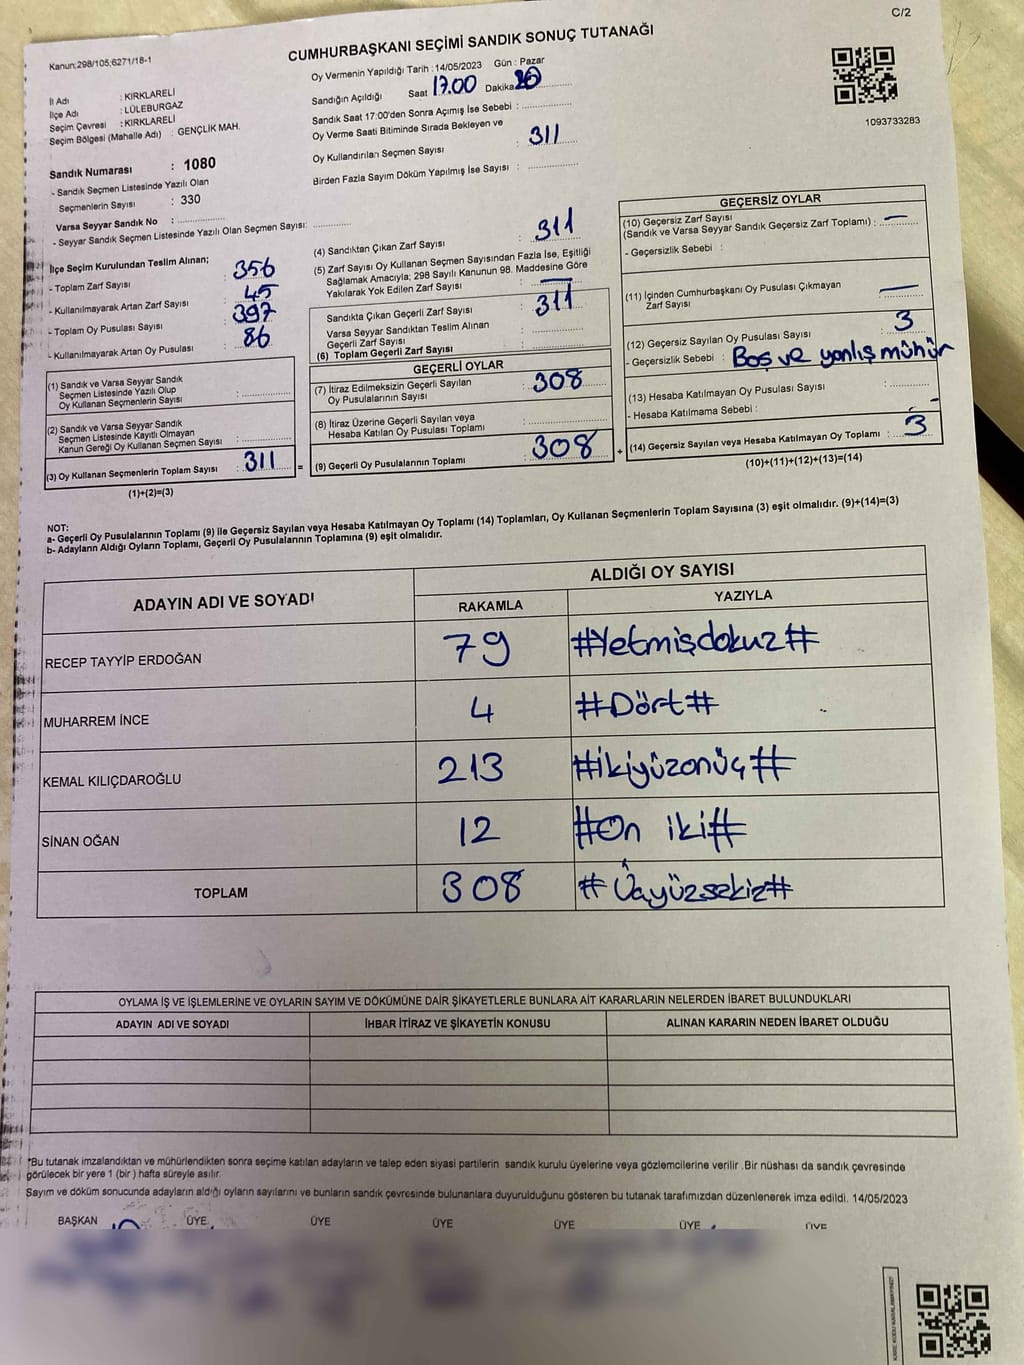 C/2
Kanun:298/105;6271/18-1
CUMHURBAŞKANI SEÇİMİ SANDIK SONUÇ TUTANAĞI
İl Adı : KIRKLARELİ
İlçe Adı : LÜLEBURGAZ
Seçim Çevresi : KIRKLARELİ
Seçim Bölgesi (Mahalle Adı) : GENÇLİK MAH.
Sandık Numarası : 1080
- Sandık Seçmen Listesinde Yazılı Olan
Seçmenlerin Sayısı : 330
Varsa Seyyar Sandık No :
- Seyyar Sandık Seçmen Listesinde Yazılı Olan Seçmen Sayısı:
Oy Vermenin Yapıldığı Tarih : 14/05/2023 Gün : Pazar
Sandığın Açıldığı Saat 17.00 Dakika
Sandık Saat 17:00'den Sonra Açımış İse Sebebi :
Oy Verme Saati Bitiminde Sırada Bekleyen ve
Oy Kullandırılan Seçmen Sayısı : 311
Birden Fazla Sayım Döküm Yapılmış İse Sayısı :
1093733283
İlçe Seçim Kurulundan Teslim Alınan;
- Toplam Zarf Sayısı : 356
- Kullanılmayarak Artan Zarf Sayısı : 45
- Toplam Oy Pusulası Sayısı : 397
- Kullanılmayarak Artan Oy Pusulası : 86
(1) Sandık ve Varsa Seyyar Sandık
Seçmen Listesinde Yazılı Olup
Oy Kullanan Seçmenlerin Sayısı :
(2) Sandık ve Varsa Seyyar Sandık
Seçmen Listesinde Kayıtlı Olmayan
Kanun Gereği Oy Kullanan Seçmen Sayısı :
(3) Oy Kullanan Seçmenlerin Toplam Sayısı : 311 =
(1)+(2)=(3)
(4) Sandıktan Çıkan Zarf Sayısı : 311
(5) Zarf Sayısı Oy Kullanan Seçmen Sayısından Fazla İse, Eşitliği
Sağlamak Amacıyla; 298 Sayılı Kanunun 98. Maddesine Göre
Yakılarak Yok Edilen Zarf Sayısı : —
Sandıkta Çıkan Geçerli Zarf Sayısı : 311
Varsa Seyyar Sandıktan Teslim Alınan
Geçerli Zarf Sayısı :
(6) Toplam Geçerli Zarf Sayısı :
GEÇERLİ OYLAR
(7) İtiraz Edilmeksizin Geçerli Sayılan
Oy Pusulalarının Sayısı : 308
(8) İtiraz Üzerine Geçerli Sayılan veya
Hesaba Katılan Oy Pusulası Toplamı :
(9) Geçerli Oy Pusulalarının Toplamı : 308 +
GEÇERSİZ OYLAR
(10) Geçersiz Zarf Sayısı
(Sandık ve Varsa Seyyar Sandık Geçersiz Zarf Toplamı) : —
- Geçersizlik Sebebi :
(11) İçinden Cumhurbaşkanı Oy Pusulası Çıkmayan
Zarf Sayısı : —
(12) Geçersiz Sayılan Oy Pusulası Sayısı : 3
- Geçersizlik Sebebi : Boş ve yanlış mühür
(13) Hesaba Katılmayan Oy Pusulası Sayısı :
- Hesaba Katılmama Sebebi : -
(14) Geçersiz Sayılan veya Hesaba Katılmayan Oy Toplamı : 3
(10)+(11)+(12)+(13)=(14)
NOT:
a- Geçerli Oy Pusulalarının Toplamı (9) ile Geçersiz Sayılan veya Hesaba Katılmayan Oy Toplamı (14) Toplamları, Oy Kullanan Seçmenlerin Toplam Sayısına (3) eşit olmalıdır. (9)+(14)=(3)
b- Adayların Aldığı Oyların Toplamı, Geçerli Oy Pusulalarının Toplamına (9) eşit olmalıdır.
ADAYIN ADI VE SOYADI
ALDIĞI OY SAYISI
RAKAMLA YAZIYLA
RECEP TAYYİP ERDOĞAN 79 #Yetmişdokuz#
MUHARREM İNCE 4 #Dört#
KEMAL KILIÇDAROĞLU 213 #ikiyüzonüç#
SİNAN OĞAN 12 #On iki#
TOPLAM 308 #Üçyüzsekiz#
OYLAMA İŞ VE İŞLEMLERİNE VE OYLARIN SAYIM VE DÖKÜMÜNE DAİR ŞİKAYETLERLE BUNLARA AİT KARARLARIN NELERDEN İBARET BULUNDUKLARI
ADAYIN ADI VE SOYADI İHBAR İTİRAZ VE ŞİKAYETİN KONUSU ALINAN KARARIN NEDEN İBARET OLDUĞU
*Bu tutanak imzalandıktan ve mühürlendikten sonra seçime katılan adayların ve talep eden siyasi partilerin sandık kurulu üyelerine veya gözlemcilerine verilir .Bir nüshası da sandık çevresinde
görülecek bir yere 1 (bir ) hafta süreyle asılır.
Sayım ve döküm sonucunda adayların aldığı oyların sayılarını ve bunların sandık çevresinde bulunanlara duyurulduğunu gösteren bu tutanak tarafımızdan düzenlenerek imza edildi. 14/05/2023
BAŞKAN ÜYE ÜYE ÜYE ÜYE ÜYE ÜYE